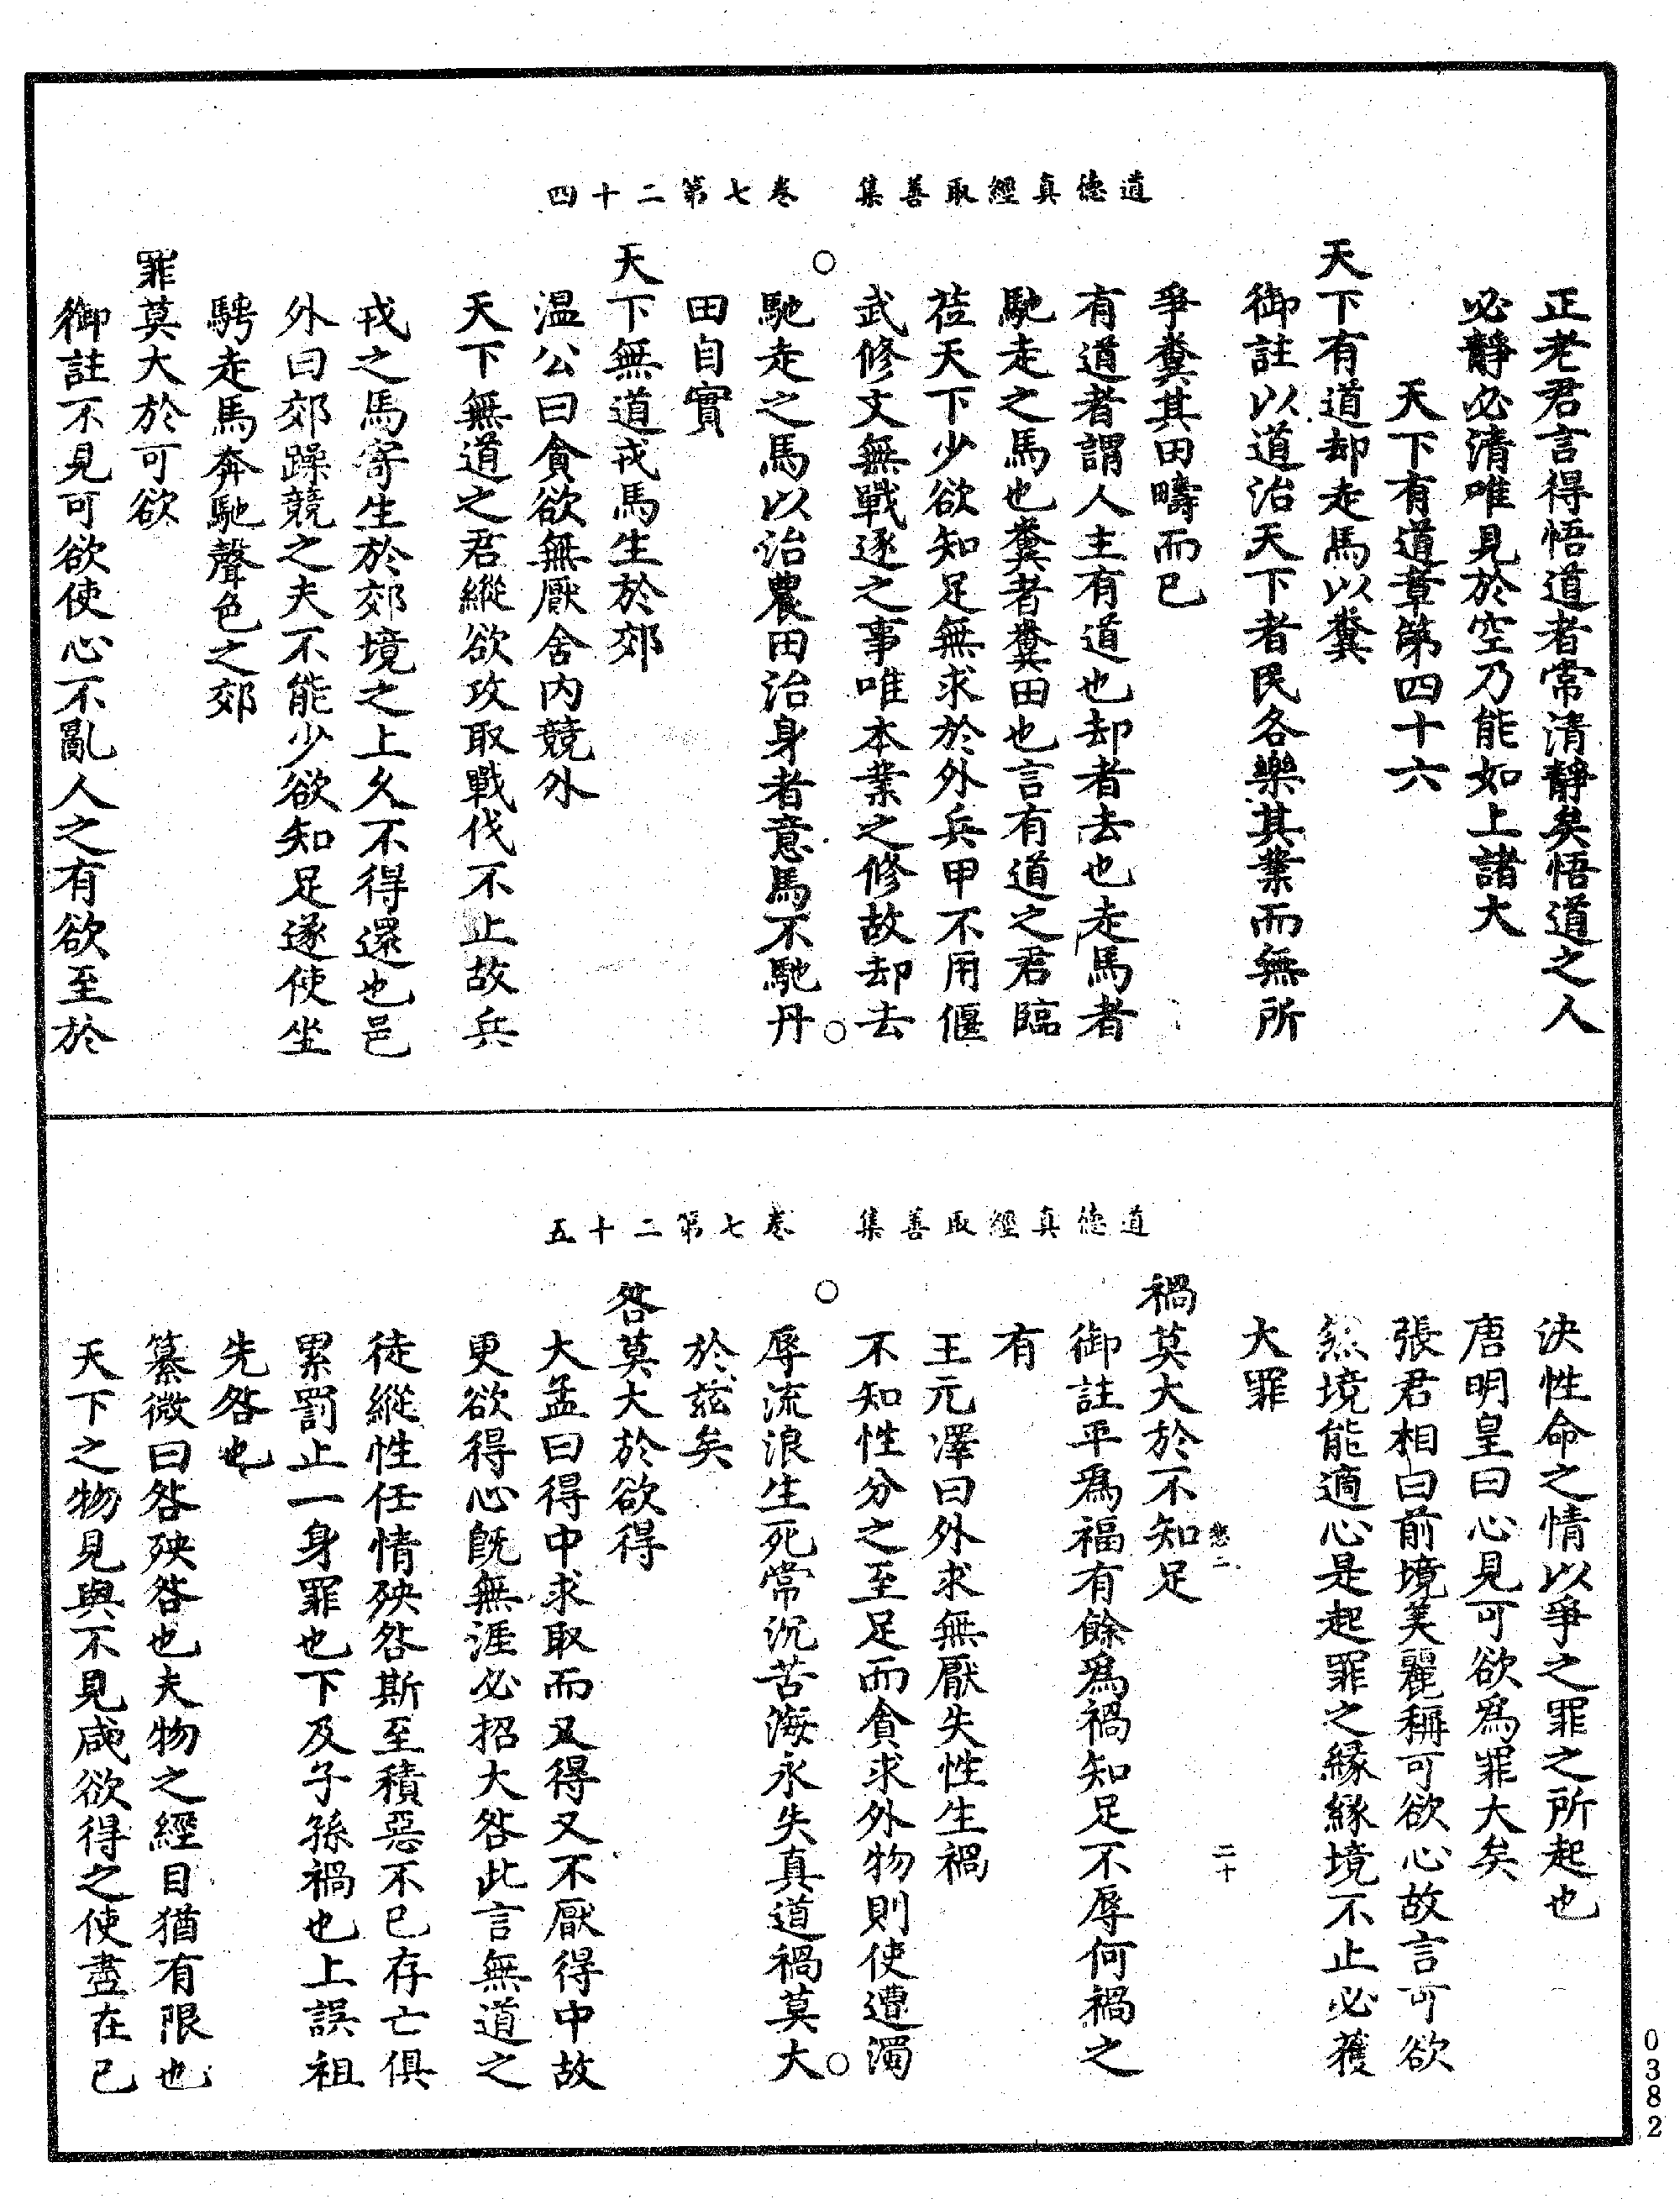 道德真經取善集　卷七第二十四
正老君言得悟道者常清靜矣悟道之人
必靜必清唯見於空乃能如上諸大
天下有道章第四十六
天下有道却走馬以糞
御註以道治天下者民各樂其業而無所
爭糞其田疇而已
有道者謂人主有道也却者去也走馬者
馳走之馬也糞者糞田也言有道之君臨
莅天下少欲知足無求於外兵甲不用偃
武修文無戰逐之事唯本業之修故却去
馳走之馬以治農田治身者意馬不馳丹
田自實
天下無道戎馬生於郊
温公曰貪欲無厭舍内競外
天下無道之君縱欲攻取戰伐不止故兵
戎之馬寄生於郊境之上久不得還也邑
外曰郊躁競之夫不能少欲知足遂使坐
騁走馬奔馳聲色之郊
罪莫大於可欲
御註不見可欲使心不亂人之有欲至於
道德真經取善集　卷七第二十五
決性命之情以爭之罪之所起也
唐明皇曰心見可欲爲罪大矣
張君相曰前境美麗稱可欲心故言可欲
然境能適心是起罪之緣緣境不止必獲
大罪
慙二　二十
禍莫大於不知足
御註平爲福有餘爲禍知足不辱何禍之
有
王元澤曰外求無厭失性生禍
不知性分之至足而貪求外物則使遭濁
辱流浪生死常沉苦海永失真道禍莫大
於茲矣
咎莫大於欲得
大孟曰得中求取而又得又不厭得中故
更欲得心既無涯必招大咎此言無道之
徒縱性任情殃咎斯至積惡不已存亡俱
累罰止一身罪也下及子孫禍也上誤祖
先咎也
纂微曰咎殃咎也夫物之經目猶有限也
天下之物見與不見咸欲得之使盡在己
0382